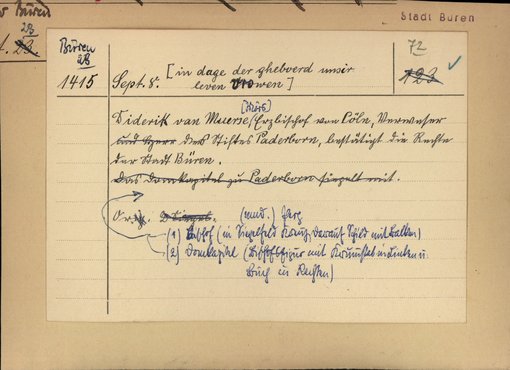 Büren
23
t. 23.
Stadt Büren
Büren
23
1415
Sept. 8. [in dage der gheboerd unsir
leven vrowen]
72
123
[Mörs]
Diderik van Muerse, Erzbischof von Cöln, Verweser
und Herr des Stiftes Paderborn, bestätigt die Rechte
der Stadt Büren.
Das Domkapitel zu Paderborn siegelt mit.
Org. 2 Siegel. (mnd.) Perg
(1) Bischof (in Siegelfeld Kreuz, darauf Schild mit Balken)
(2) Domkapitel (Bischofsfigur mit Krummstab in Linken u.
Buch in Rechten)